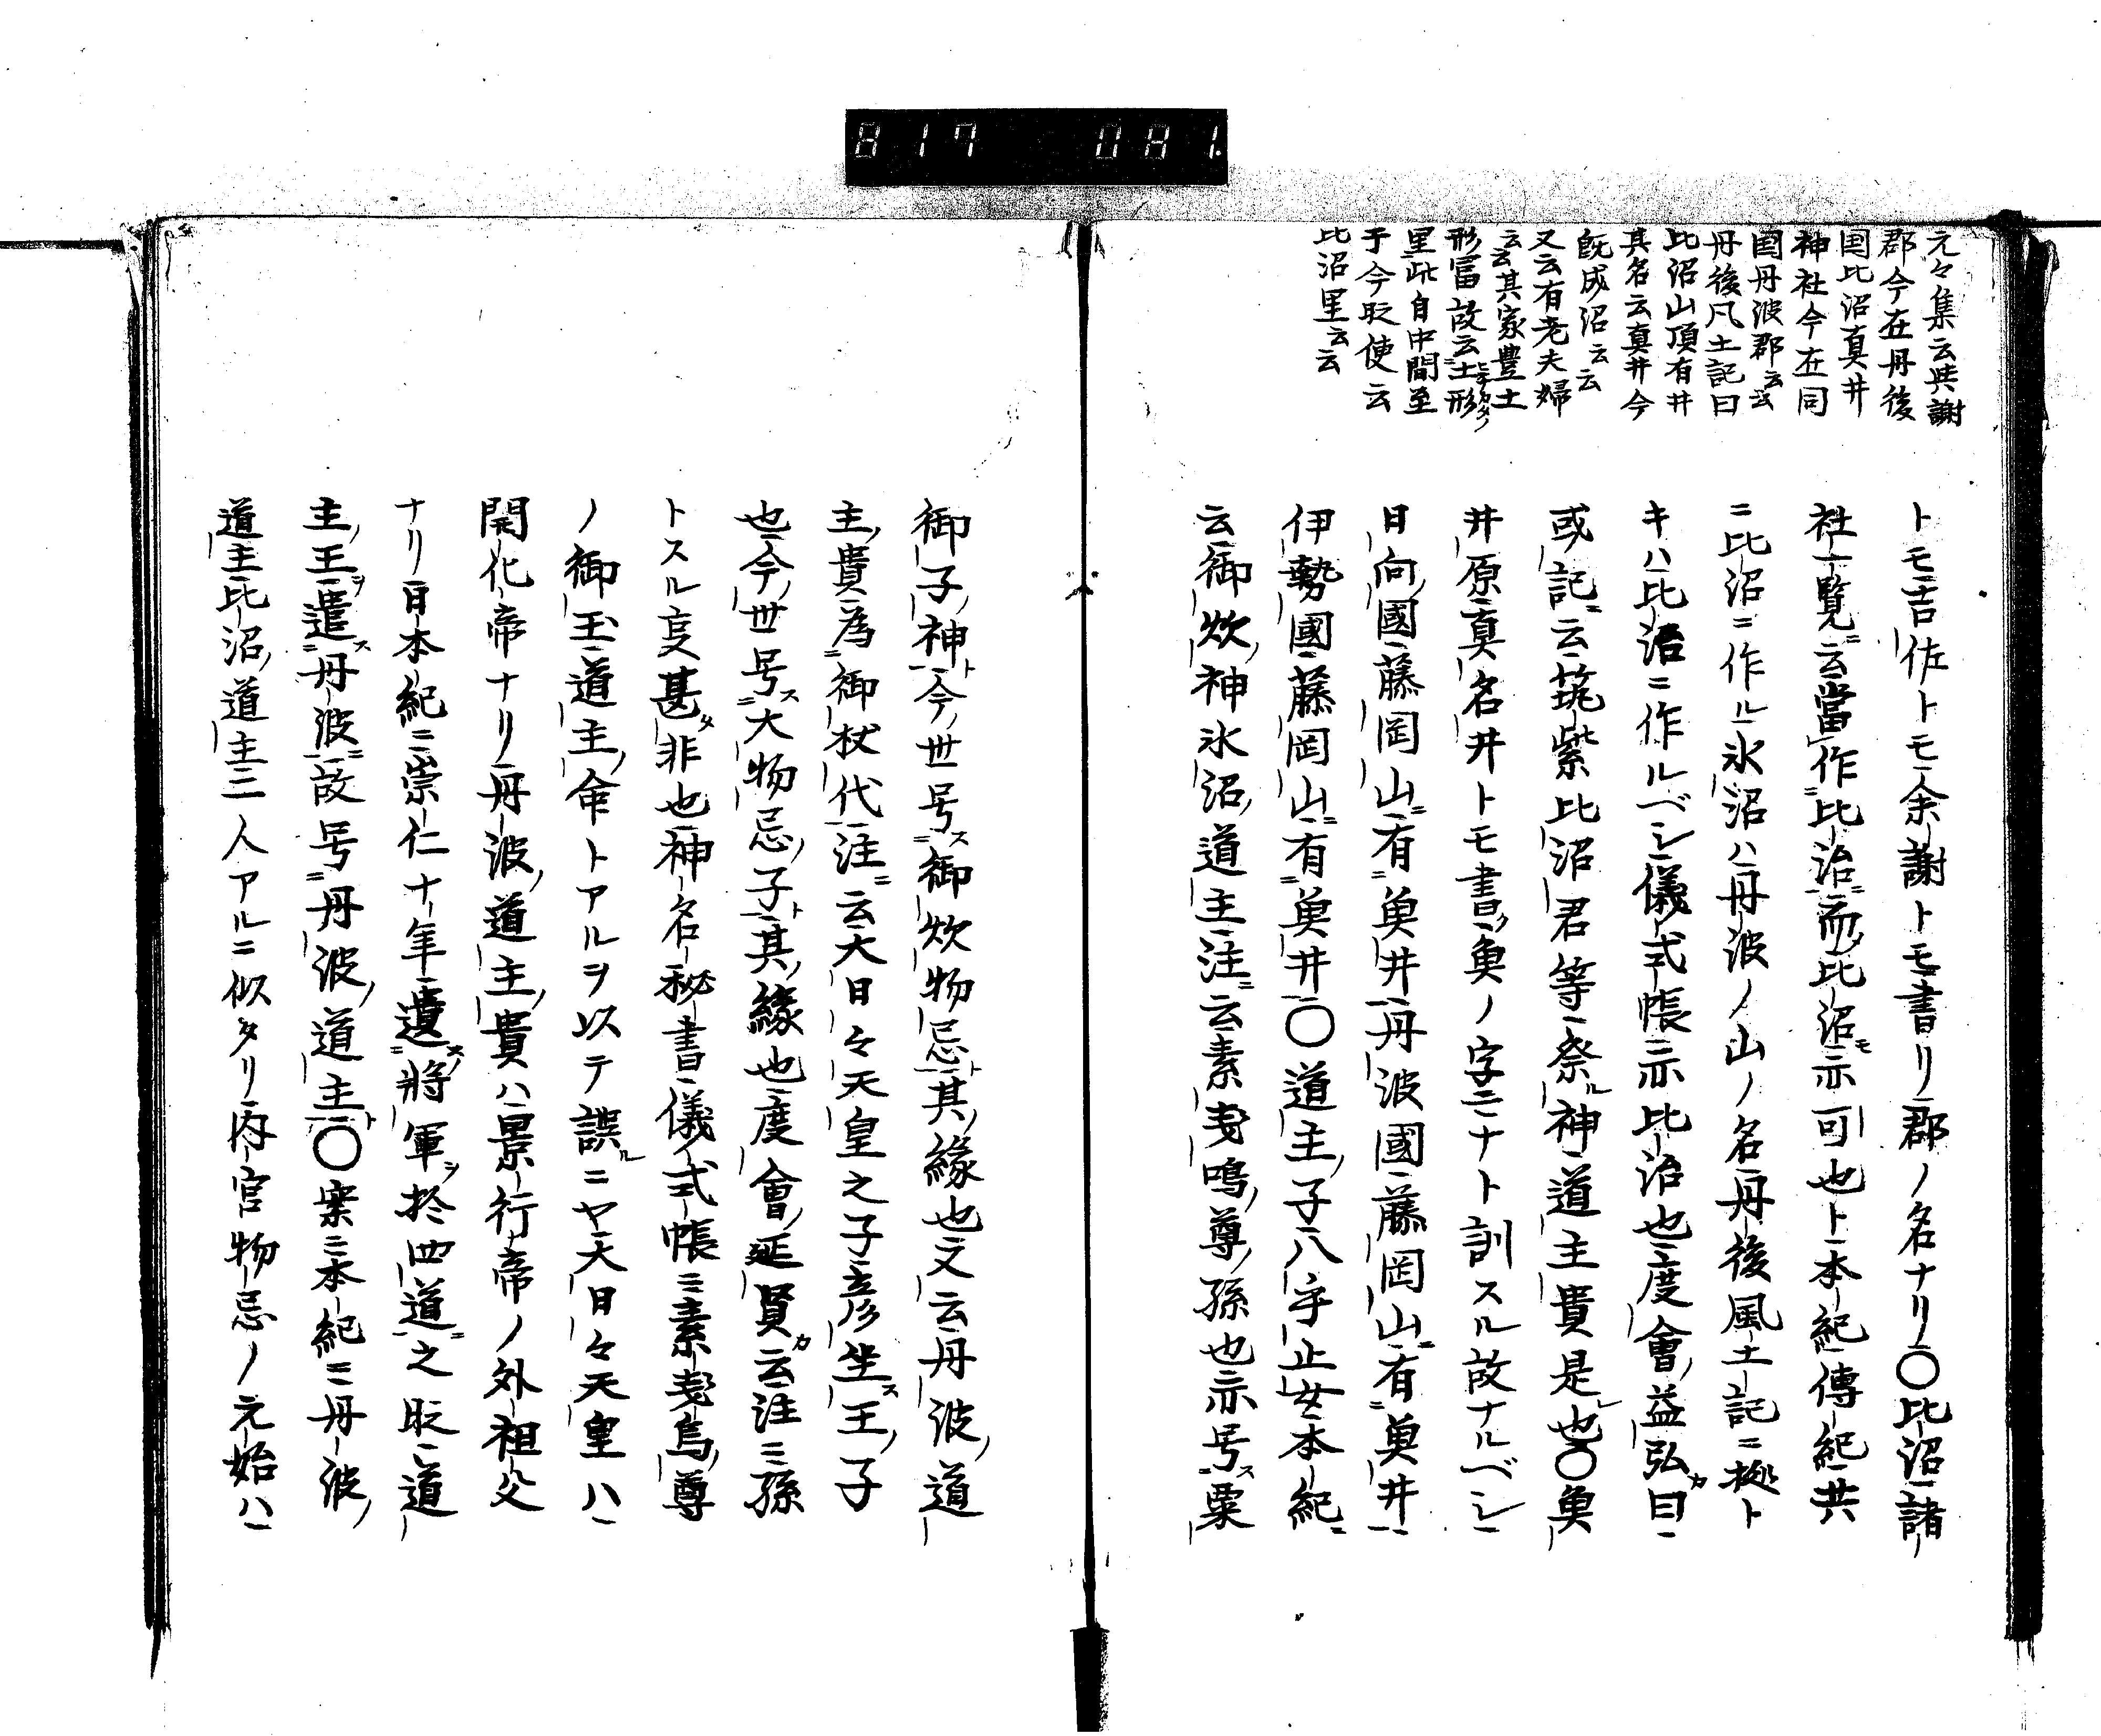 817 081.
元々集云與謝
郡今在丹後
国比沼真井
神社今在同
国丹波郡云云
丹後凡土記曰
比沼山頂有井
其名云真井今
既成沼云云
又云有老夫婦
云云其家豊土
形冨故云土形
里此自中間至
于今㪽使云
比沼里云云
トモ吉佐トモ余謝トモ書リ郡ノ名ナリ〇比沼諸
社一覽云當作比治而比沼モ亦可也ト本紀傳紀共
ニ比沼ニ作ル氷沼ハ丹波ノ山ノ名丹後風土記ニ拠ト
キハ比治ニ作ルベシ儀式帳亦比治也度會益弘カ曰
或記云筑紫比沼君等祭ル神道主貴是也〇奠
井原真名井トモ書ク奠ノ字ニナト訓スル故ナルベシ
日向國藤岡山有奠井丹波國藤岡山有奠井
伊勢國藤岡山有奠井〇道主子八乎止女本紀
云御炊神氷沼道主注云素戔鳴尊孫也亦号ス粟
御子神ト今世号ス御炊物忌ト其緣也文云丹波道
主貴為御杖代注云大日々天皇之子彦坐ス王子
也今世号ス大物忌子ト其緣也度會延賢カ云注ニ孫
トスル㕝甚タ非也神名秘書儀式帳ニ素戔烏尊
ノ御玉道主命トアルヲ以テ誤ルニヤ大日々天皇ハ
開化帝ナリ丹波道主貴ハ景行帝ノ外祖父
ナリ日本紀ニ崇仁十年遺ス將軍ヲ於四道之㪽道
主王ヲ遣ス丹波故号丹波道主ト〇案ニ本紀ニ丹波
道主比沼道主二人アルニ似タリ内官物忌ノ元始ハ